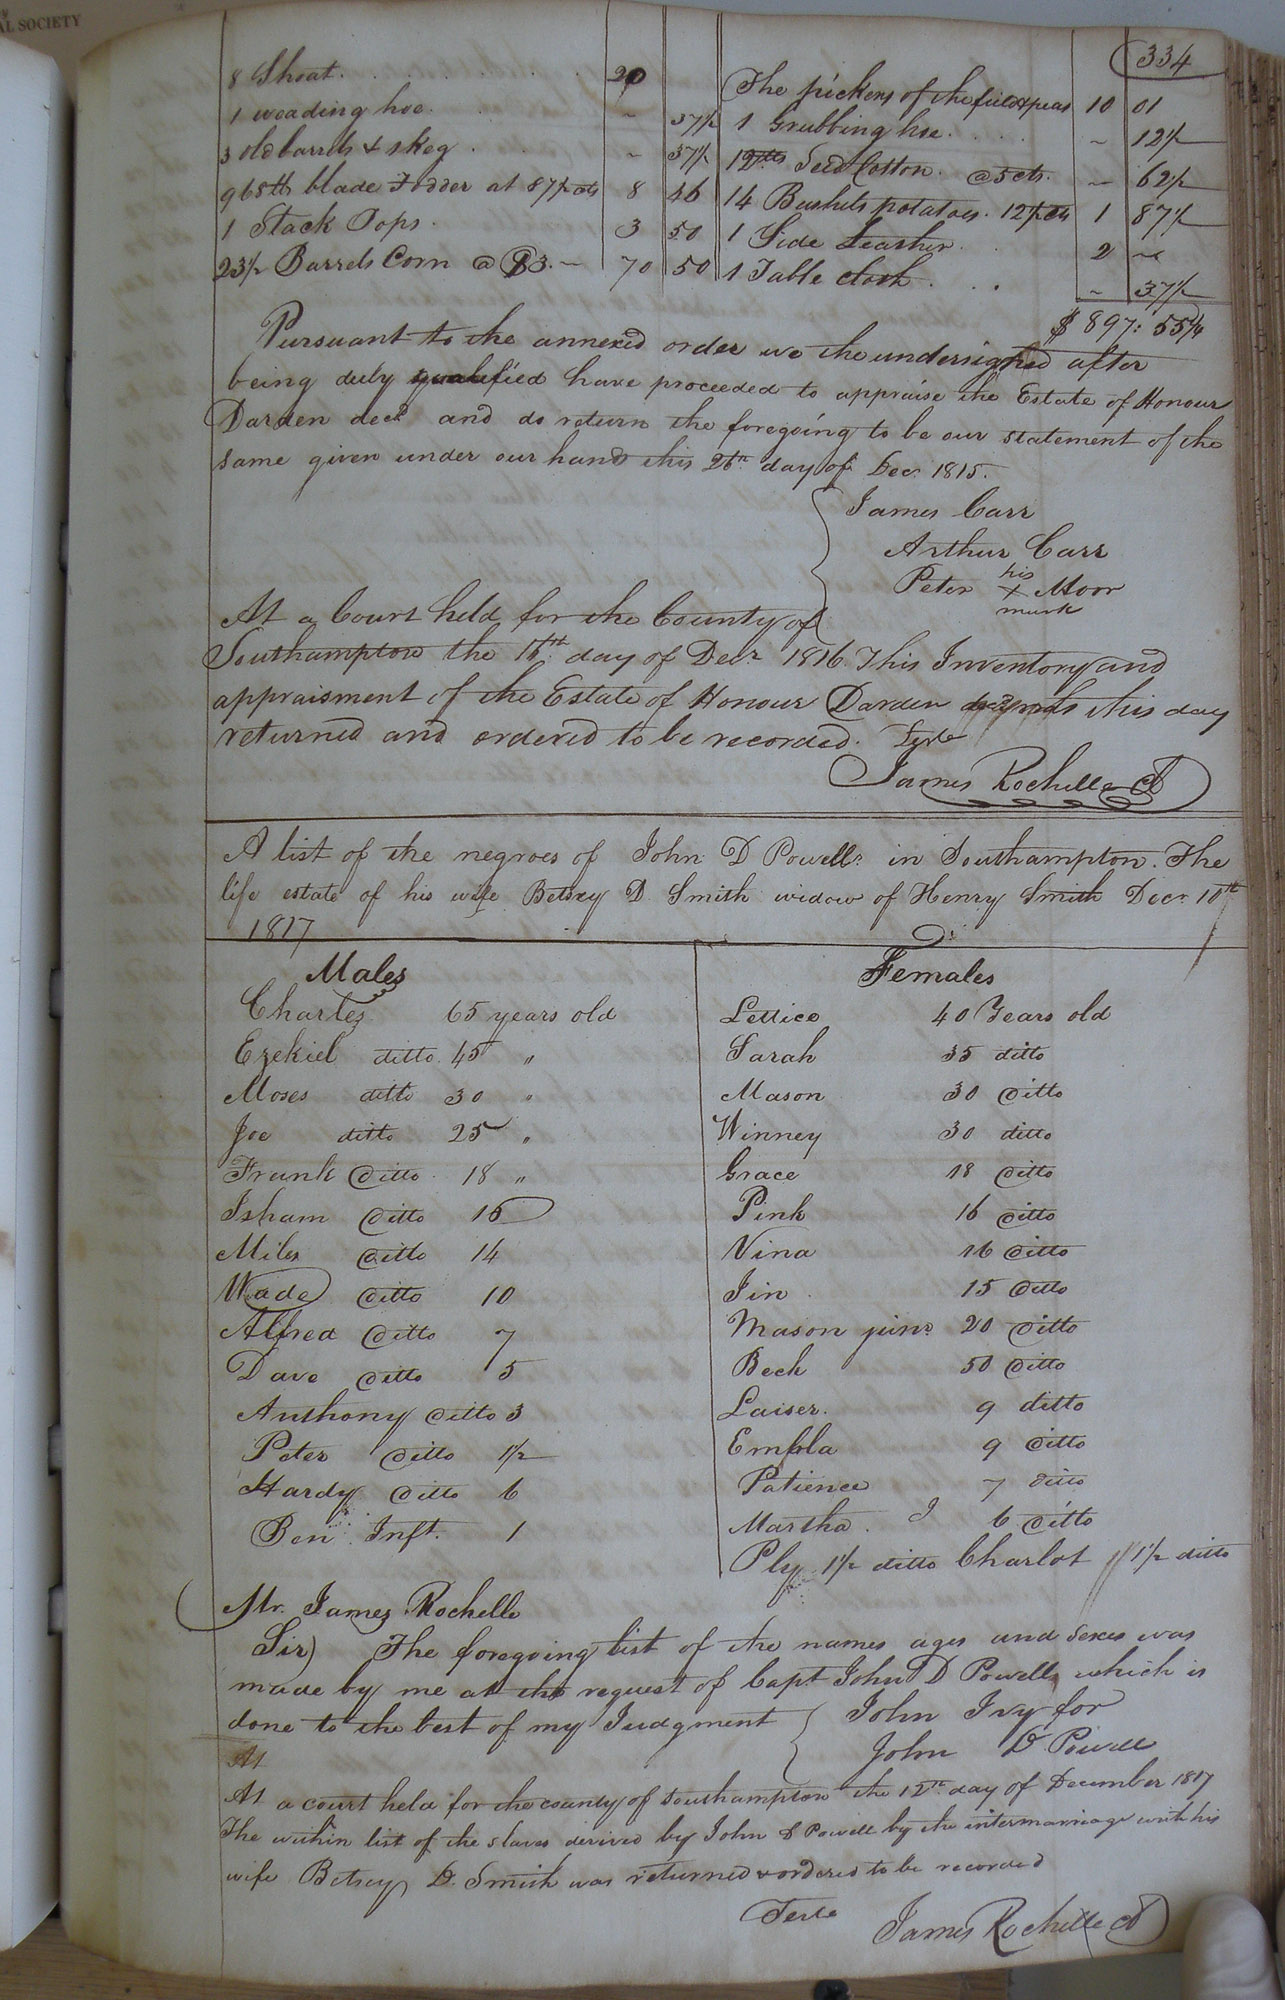 AL SOCIETY
334
8 Shoat. 20
1 weading hoe. ~ 37½
3 old barrels & 1 keg. ~ 37½
965 lb blade Fodder at 87½ cts 8 46
1 Stack Tops. 3 50
23½ Barrels Corn @ $3. — 70 50
The pickens of the field peas 10 01
1 Grubbing hoe. ~ 12½
Seed Cotton. @ 5 cts. ~ 62½
14 Bushels potatoes. 12½ cts 1 87½
1 Side Leather 2 ~
1 Table cloth. ~ 37½
$ 897: 55¼
Pursuant to the annexed order we the undersigned after
being duly qualified have proceeded to appraise the Estate of Honour
Darden decd. and do return the foregoing to be our statement of the
same given under our hands this 26th day of Decr. 1815.
James Carr
Arthur Carr
Peter his X mark Moor
At a Court held for the County of
Southampton the 16th day of Decr. 1816. This Inventory and
appraisment of the Estate of Honour Darden this day
returned and ordered to be recorded. Teste
James Rochelle Cl
A list of the negroes of John D Powells in Southampton. The
life estate of his wife Betsey D Smith widow of Henry Smith Decr. 10th
1817
Males
Charles 65 years old
Ezekiel ditto 45 "
Moses ditto 30 "
Joe ditto 25 "
Frank Ditto 18 "
Isham Ditto 16
Miles Ditto 14
Wade Ditto 10
Alfred Ditto 7
Dave Ditto 5
Anthony Ditto 3
Peter Ditto 1½
Hardy Ditto 6
Ben Inft. 1
Females
Lettice 40 Years old
Sarah 35 ditto
Mason 30 Ditto
Winney 30 ditto
Grace 18 Ditto
Pink 16 Ditto
Vina 16 Ditto
Jin 15 Ditto
Mason junr. 20 Ditto
Beck 50 Ditto
Laiser. 9 ditto
Embla 9 Ditto
Patience 7 Ditto
Martha. 6 Ditto
Ply 1½ ditto Charlot 1½ ditto
Mr. James Rochelle
Sir) The foregoing list of the names ages and Sexes was
made by me at the request of Capt. John D Powell which is
done to the best of my Judgment
John Ivy for
John D Powell
At
At a court held for the county of Southampton the 12th day of December 1817
The within list of the slaves derived by John D Powell by the intermarriage with his
wife Betsey D. Smith was returned & ordered to be recorded
Teste James Rochelle Cl